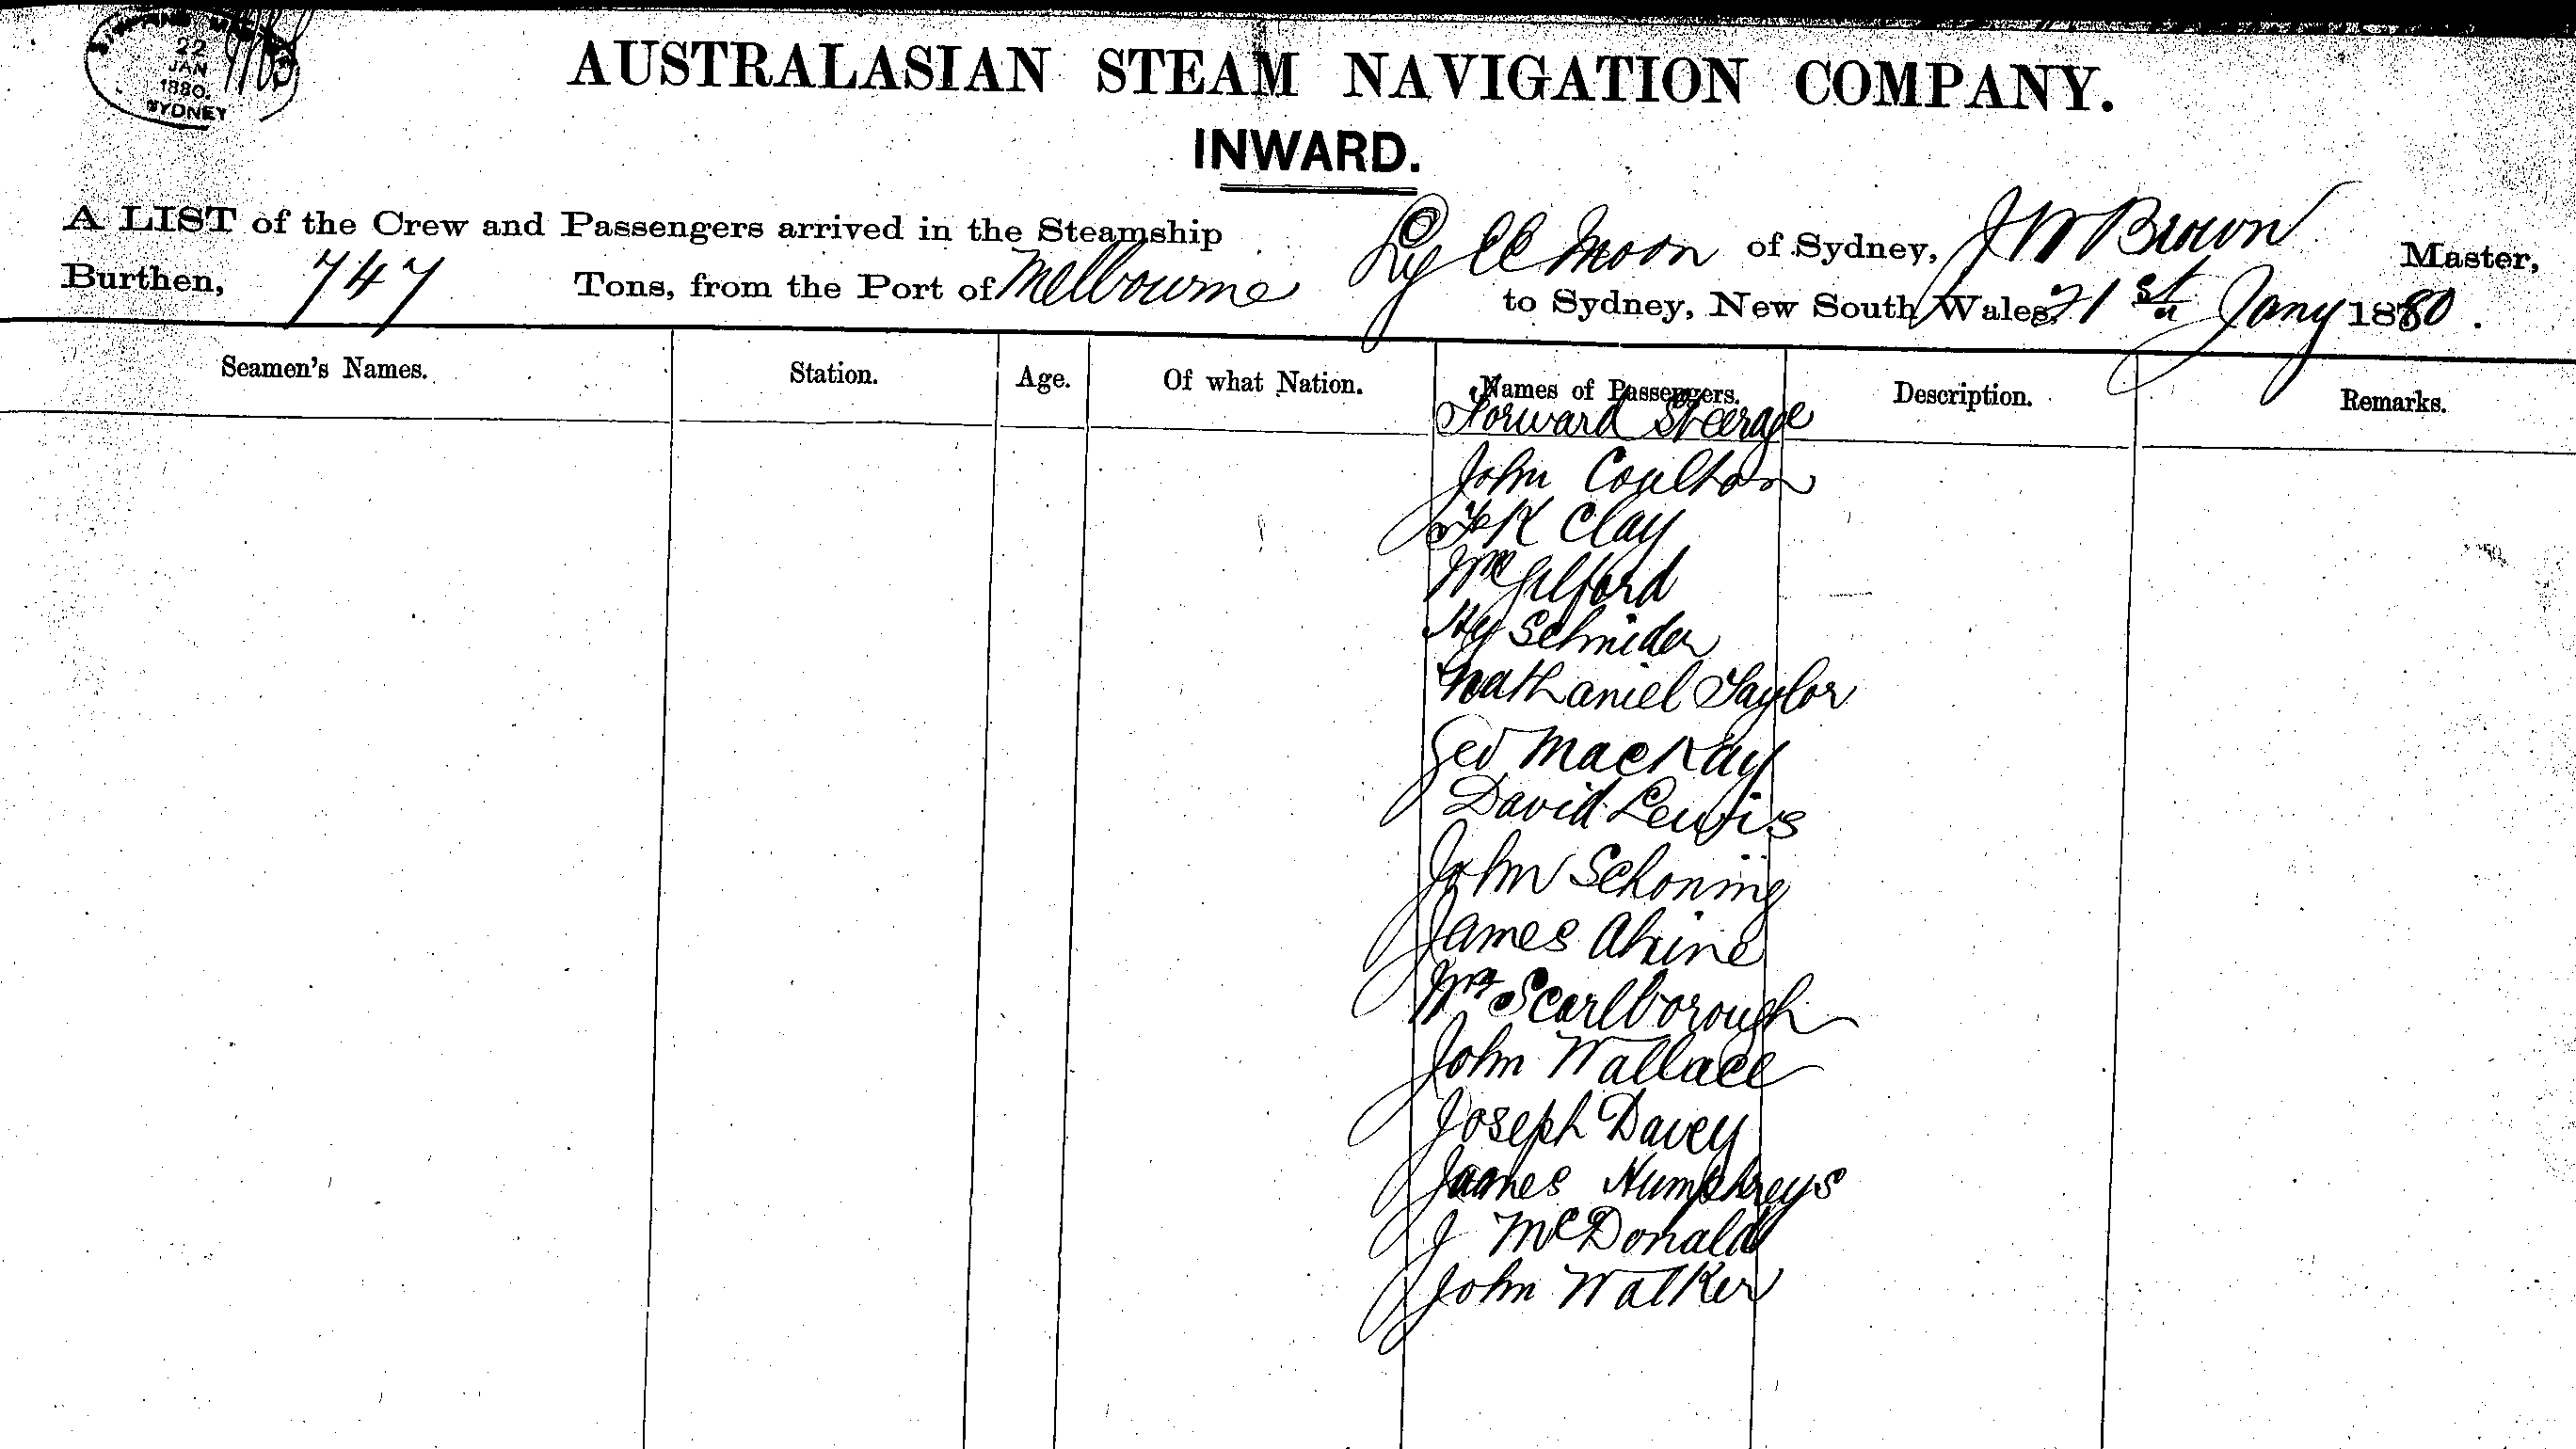 22
JAN
1880.
SYDNEY
AUSTRALASIAN STEAM NAVIGATION COMPANY.
INWARD.
A LIST of the Crew and Passengers arrived in the Steamship Ly ee Moon of Sydney, J W Brown Master,
Burthen, 747 Tons, from the Port of Melbourne to Sydney, New South Wales, 21st Jany 1880.
Seamen's Names. Station. Age. Of what Nation. Names of Passengers. Description. Remarks.
Forward Steerage
John Coulton
Clay
Wm Gilford
Hy Schnider
Nathaniel Taylor
Geo MacKay
David Lewis
John Schoning
James Ahine
Wm Scarlborough
John Wallace
Joseph Davey
James Humphreys
J McDonald
John Walker